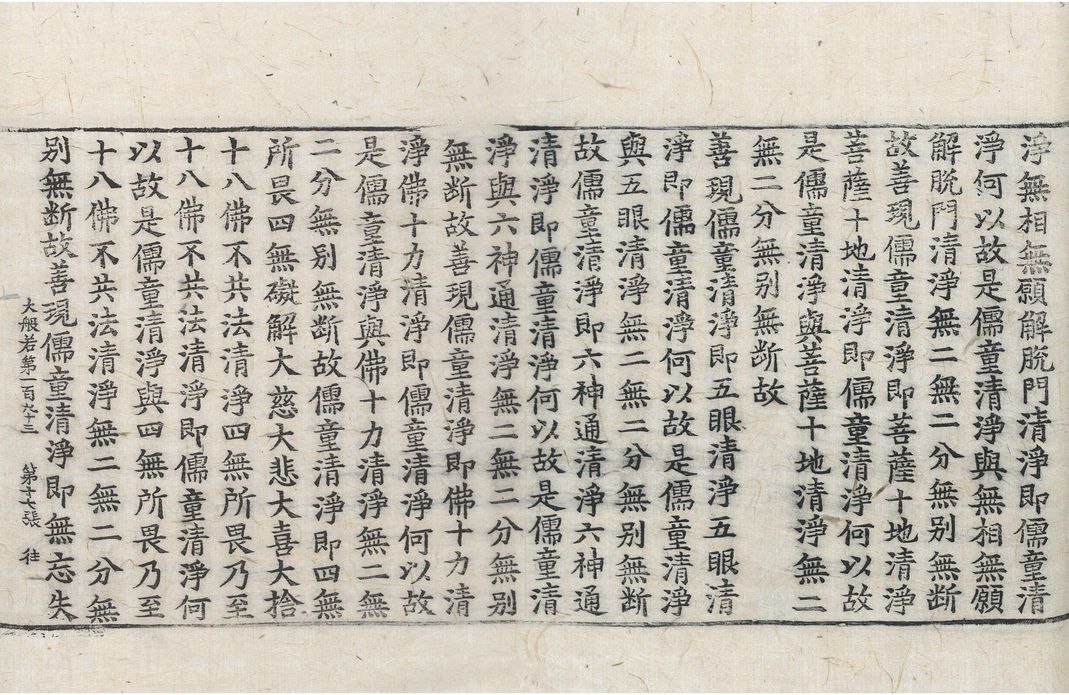 淨無相無願解脫門清淨即儒童清
淨何以故是儒童清淨與無相無願
解脫門清淨無二無二分無别無断
故善現儒童清淨即菩薩十地清淨
菩薩十地清淨即儒童清淨何以故
是儒童清淨與菩薩十地清淨無二
無二分無别無断故
善現儒童清淨即五眼清淨五眼清
淨即儒童清淨何以故是儒童清淨
與五眼清淨無二無二分無别無断
故儒童清淨即六神通清淨六神通
清淨即儒童清淨何以故是儒童清
淨與六神通清淨無二無二分無别
無断故善現儒童清淨即佛十力清
淨佛十力清淨即儒童清淨何以故
是儒童清淨與佛十力清淨無二無
二分無别無断故儒童清淨即四無
所畏四無礙解大慈大悲大喜大捨
十八佛不共法清淨四無所畏乃至
十八佛不共法清淨即儒童清淨何
以故是儒童清淨與四無所畏乃至
十八佛不共法清淨無二無二分無
别無断故善現儒童清淨即無忘失
大般若第一百九十三 第十七張 往